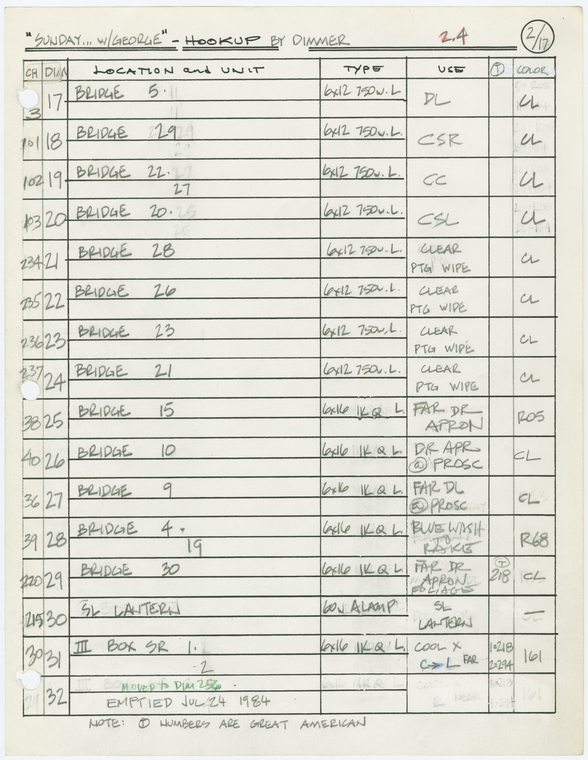 "SUNDAY... W/GEORGE" - HOOKUP BY DIMMER 2.4 2/17
CH DIM LOCATION and UNIT TYPE USE T COLOR
3 17 BRIDGE 5. 6x12 750w.L. DL CL
101 18 BRIDGE 29 6x12 750w.L. CSR CL
102 19 BRIDGE 22. 6x12 750w.L. CC CL
27
103 20 BRIDGE 20. 6x12 750w.L. CSL CL
234 21 BRIDGE 28 6x12 750w.L. CLEAR CL
PTG WIPE
235 22 BRIDGE 26 6x12 750w.L. CLEAR CL
PTG WIPE
236 23 BRIDGE 23 6x12 750w.L. CLEAR CL
PTG WIPE
237 24 BRIDGE 21 6x12 750w.L. CLEAR CL
PTG WIPE
38 25 BRIDGE 15 6x16 1K Q L. FAR DR R05
APRON
40 26 BRIDGE 10 6x16 1K Q L. DR APR CL
@ PROSC
36 27 BRIDGE 9 6x16 1K Q L. FAR DL CL
@ PROSC
39 28 BRIDGE 4. 6x16 1K Q L. BLUE WASH R68
19 TO RAKE
220 29 BRIDGE 30 6x16 1K Q L. FAR DR T 218 CL
APRON
FOLIAGE
215 30 SL LANTERN 60w A LAMP SL —
LANTERN
30 31 III BOX SR 1. 6x16 1K Q L. COOL X 1-0218 161
2 C→L FAR 2-0294
32 MOVED to DIM 256
EMPTIED JUL 24 1984
NOTE: T NUMBERS ARE GREAT AMERICAN